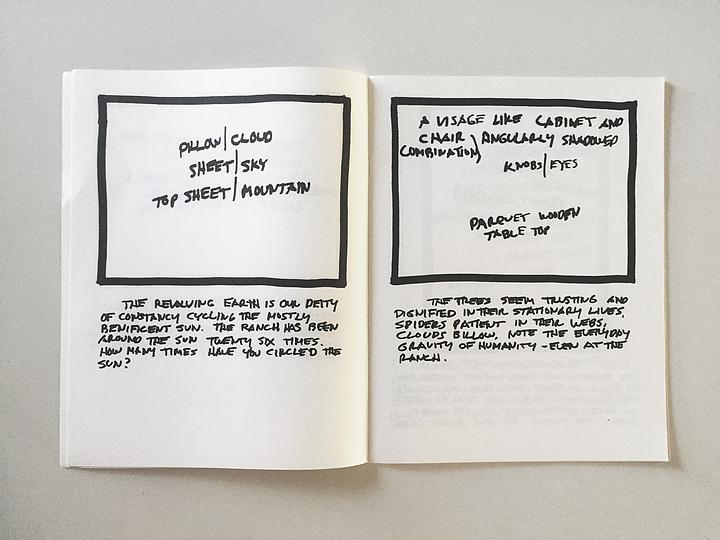 PILLOW|CLOUD
SHEET|SKY
TOP SHEET|MOUNTAIN
THE REVOLVING EARTH IS OUR DEITY
OF CONSTANCY CYCLING THE MOSTLY
BENIFICENT SUN. THE RANCH HAS BEEN
AROUND THE SUN TWENTY SIX TIMES.
HOW MANY TIMES HAVE YOU CIRCLED THE
SUN?
A VISAGE LIKE CABINET AND
CHAIR ANGULARLY SHADOWED
COMBINATION)
KNOBS|EYES
PARQUET WOODEN
TABLE TOP
THE TREES SEEM TRUSTING AND
DIGNIFIED IN THEIR STATIONARY LIVES,
SPIDERS PATIENT IN THEIR WEBS,
CLOUDS BILLOW, NOTE THE EVERYDAY
GRAVITY OF HUMANITY - EVEN AT THE
RANCH.